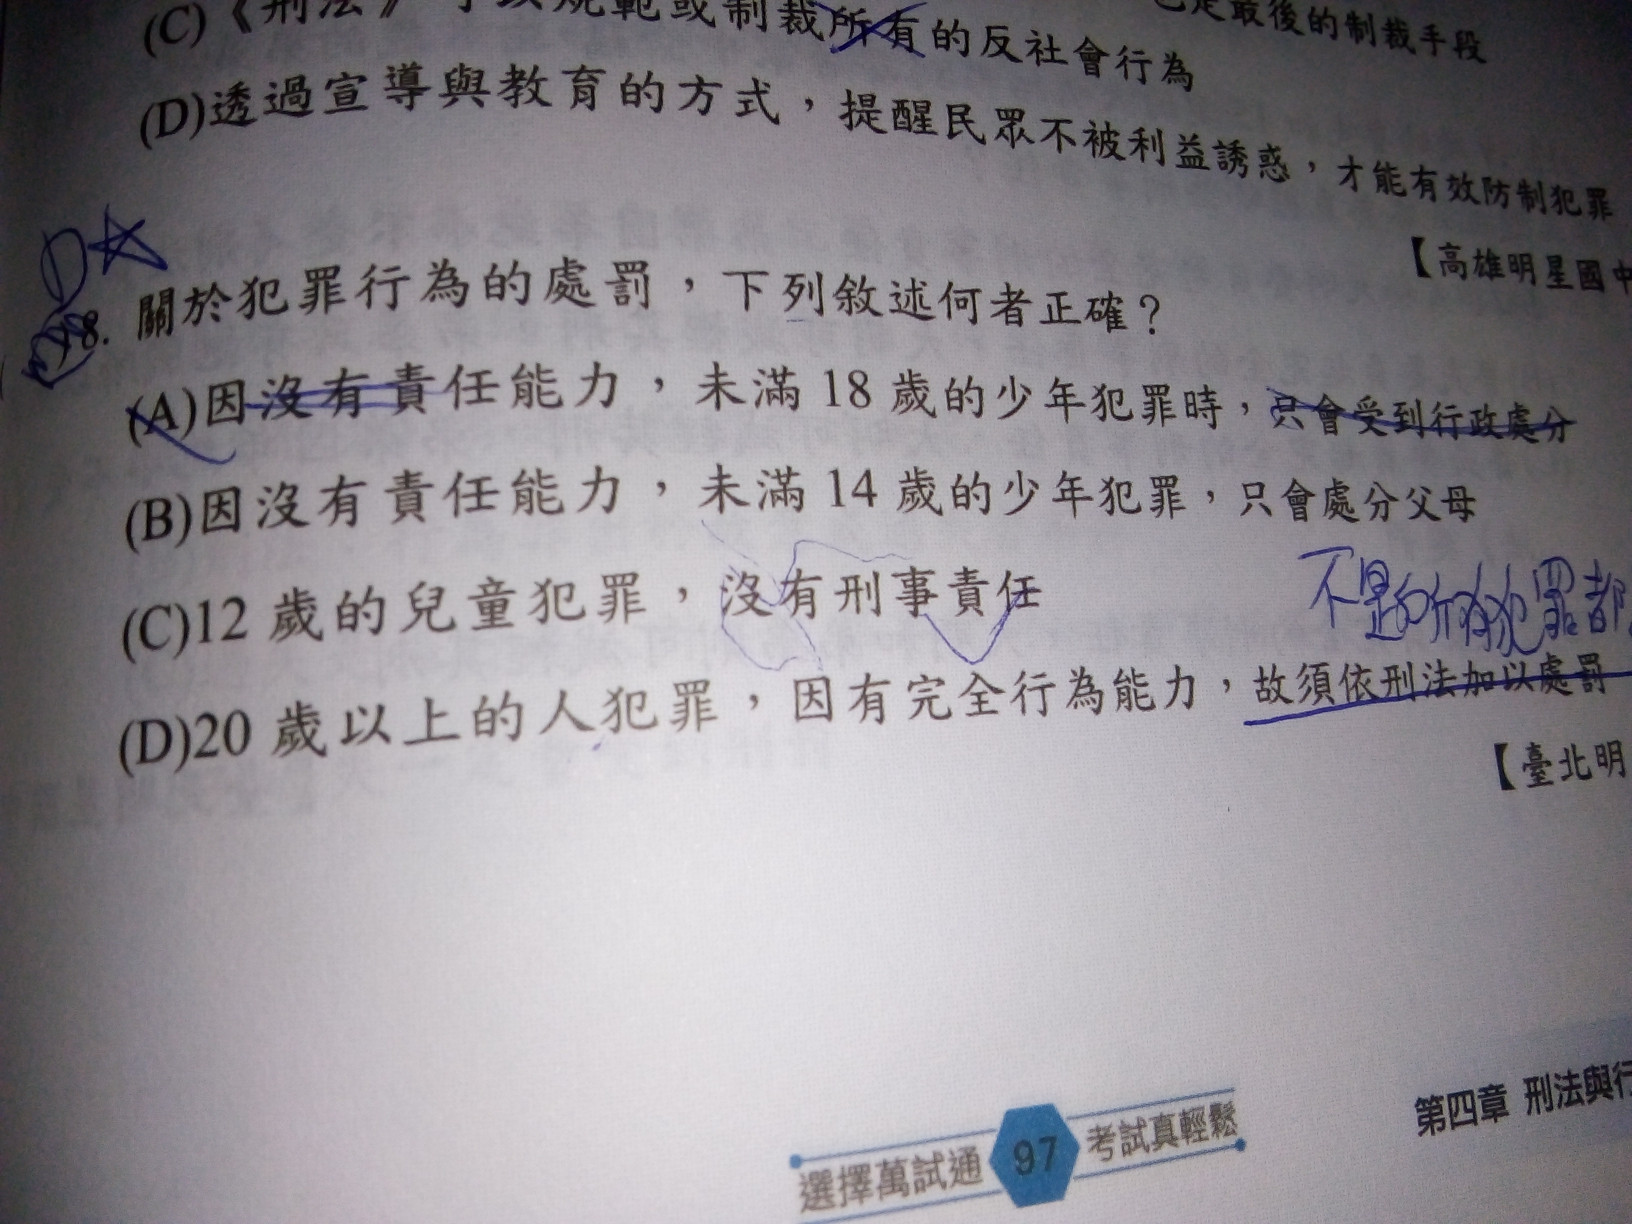 (C)《刑法》可以規範或制裁所有的反社會行為
是最後的制裁手段
(D)透過宣導與教育的方式，提醒民眾不被利益誘惑，才能有效防制犯罪
【高雄明星國中
D☆
8. 關於犯罪行為的處罰，下列敘述何者正確？
(A)因沒有責任能力，未滿 18 歲的少年犯罪時，只會受到行政處分
(B)因沒有責任能力，未滿 14 歲的少年犯罪，只會處分父母
(C)12 歲的兒童犯罪，沒有刑事責任
不是所有犯罪都
(D)20 歲以上的人犯罪，因有完全行為能力，故須依刑法加以處罰
【臺北明
第四章 刑法與行
選擇萬試通 97 考試真輕鬆